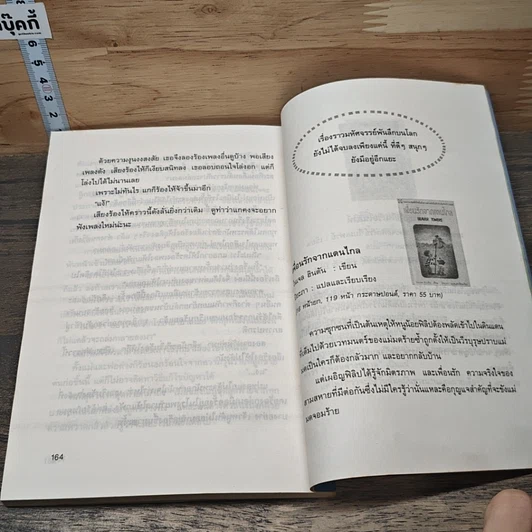 บุ๊คกี้
6
5
4
3
ด้วยความงุนงงสงสัย เธอจึงลองร้องเพลงอื่นดูบ้าง พอเสียง
เพลงดัง เสียงร้องไห้ก็เงียบสนิทลง เธอลอบถอนใจโล่งอก แต่ก็
โล่งไปได้ไม่นานเลย
เพราะไม่ทันไร แกก็ร้องไห้จ้าขึ้นมาอีก
"แง้!"
เสียงร้องไห้คราวนี้ดังลั่นยิ่งกว่าเดิม ดูท่าว่าแกคงจะอยาก
ฟังเพลงใหม่น่ะนะ
164
เรื่องราวมหัศจรรย์พันลึกบนโลก
ยังไม่ได้จบลงเพียงแค่นี้ ที่ดีๆ สนุกๆ
ยังมีอยู่อีกแยะ
เพื่อนรักจากแดนไกล
อินตัน : เขียน
: แปลและเรียบเรียง
หน้ายก, 119 หน้า กระดาษปอนด์, ราคา 55 บาท)
ความซุกซนที่เป็นต้นเหตุให้หนูน้อยฟิลิปต้องพลัดเข้าไปในดินแดน
ที่เต็มไปด้วยเวทมนตร์ของแม่มดร้ายซ้ำถูกตั้งให้เป็นวีรบุรุษปราบแม่
เป็นใครก็ต้องกลัวมาก และอยากกลับบ้าน
แต่เผอิญฟิลิปได้รู้จักมิตรภาพ และเพื่อนรัก ความจริงใจของ
สามสหายที่มีต่อกันซึ่งไม่มีใครรู้ว่านั่นแหละคือกุญแจสำคัญที่จะขังแม่
มดจอมร้าย